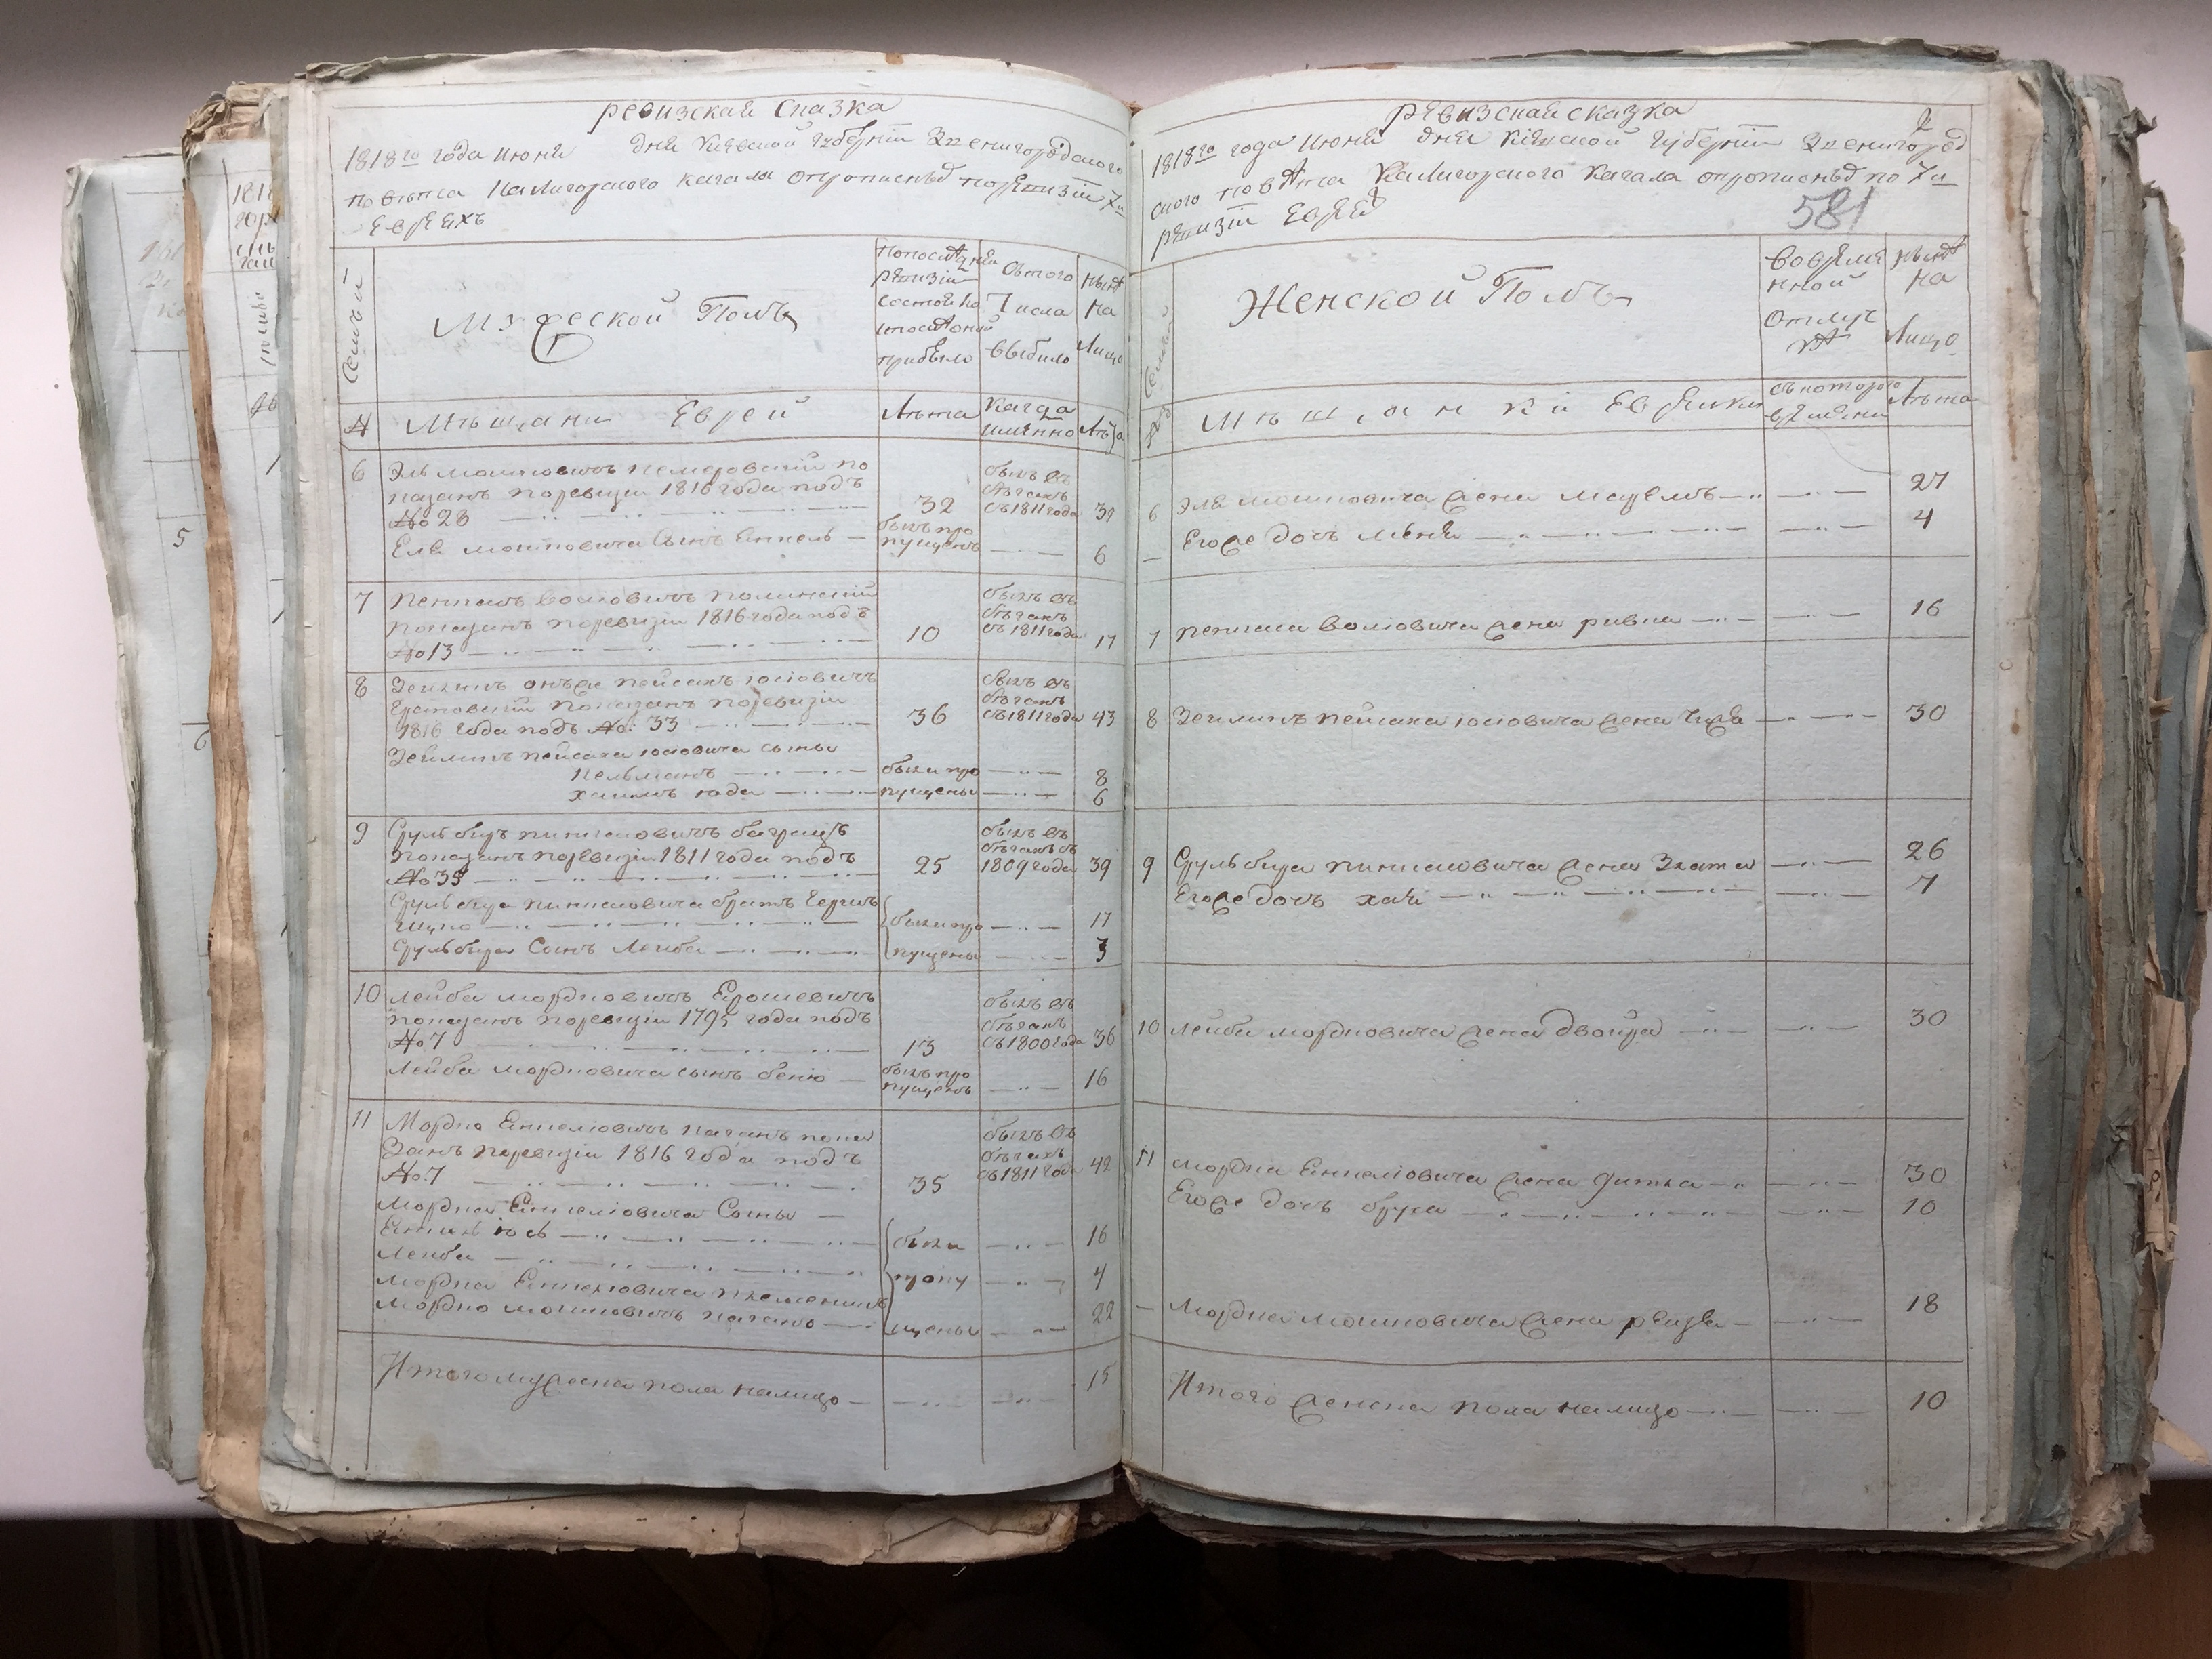 ревизская сказка
1818го года июня дня Киевской губернии Звенигородского
повѣта Калигорского кагала о прописныхъ по ревизіи 7й
Евреяхъ
Семьи
Мужеской Полъ
По последней ревизіи состояло и после оной прибыло
Съ того числа выбыло
Нынѣ на лицо
№ Мѣщани Еврей
Лѣта
Когда именно
Лѣта
6 Эль Мошковичъ Немеровский по
казанъ по ревизіи 1816 года подъ
№ 28 32 былъ въ бѣгахъ съ 1811 года 39
Еля Мошковича сынъ Енкель былъ пропущенъ 6
7 Пинхасъ Волковичъ Полинский
показанъ по ревизіи 1816 года подъ
№ 13 10 былъ въ бѣгахъ съ 1811 года 17
8 Зейликъ онъ же Пейсахъ Іосіовичъ
показанъ по ревизіи
1816 года подъ №: 33 36 былъ въ бѣгахъ съ 1811 года 43
Зейлика Пейсаха Іосіовича сыны
Кельманъ были про 8
Хаимъ Юда пущены 6
9 Сруль Беръ Пинхасовичъ
показанъ по ревизіи 1811 года подъ
№ 35 25 былъ въ бѣгахъ съ 1809 года 39
Сруль Бера Пинхасовича братъ Гершъ
Ицко были про 17
Сруль Бера сынъ Лейба пущены 3
10 Лейба Мордковичъ Ерошевичъ
показанъ по ревизіи 1795 года подъ
№ 7 13 былъ въ бѣгахъ съ 1800 года 36
Лейба Мордковича сынъ Беню былъ пропущенъ 16
11 Мордко Енкеліовичъ Каганъ пока
занъ по ревизіи 1816 года подъ
№ 7 35 былъ въ бѣгахъ съ 1811 года 42
Мордка Енкеліовича Сыны
Енкель Іось были 16
Лейба пропу 4
Мордка Енкеліовича племенникъ
Мордко Мошковичъ Каганъ щены 22
Итого мужеска пола налицо 15
2
ревизская сказка
1818го года Июня дня Кіевской Губерніи Звенигород
ского повѣта Калигорского Кагала о прописныхъ по 7й
ревизіи Еврей
581
Семьи
Женской Полъ
Во временной отлучкѣ
Нынѣ на лицо
Мѣщанки Еврейки
Съ которого времени
Лѣта
6 Эля Мошковича жена 27
Его же дочь Меня 4
7 Пинхаса Волковича жена Ривка 16
8 Зейлика Пейсаха Іосіовича жена 30
9 Сруль Бера Пинхасовича жена Злата 26
Его же дочь Хая 7
10 Лейба Мордковича жена Двойра 30
11 Мордка Енкеліовича жена 30
Его же дочь Бруха 10
Мордка Мошковича жена Рейзя 18
Итого женска пола налицо 10
1818
5
6